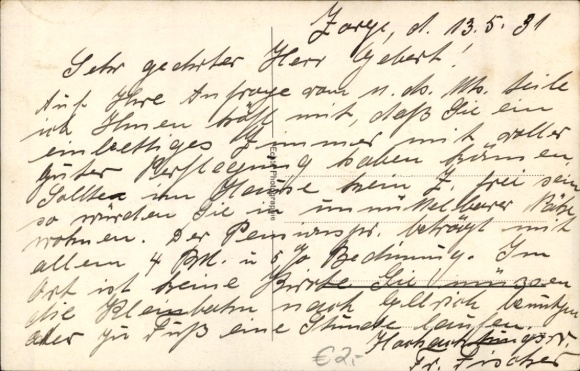 Zorge, d. 13.5.31
Sehr geehrter Herr Gebert!
Auf Ihre Anfrage vom 11. ds. Mts. teile
ich Ihnen höfl. mit, daß Sie ein
einbettiges Zimmer mit voller
guter Verpflegung haben können,
Sollte im Hause kein Z. frei sein
so würden Sie in unmittelbarer Nähe
wohnen. Der Pensionspr. beträgt mit
allem 4 Bd. u 5% Bedienung. Im
Ort ist keine Sie müssen
die Kleinbahn nach Ellrich benutzen
oder zu Fuß eine Stunde laufen.
Hochachtungsv.
Fr. Fischer
Echte Photographie
€2,-